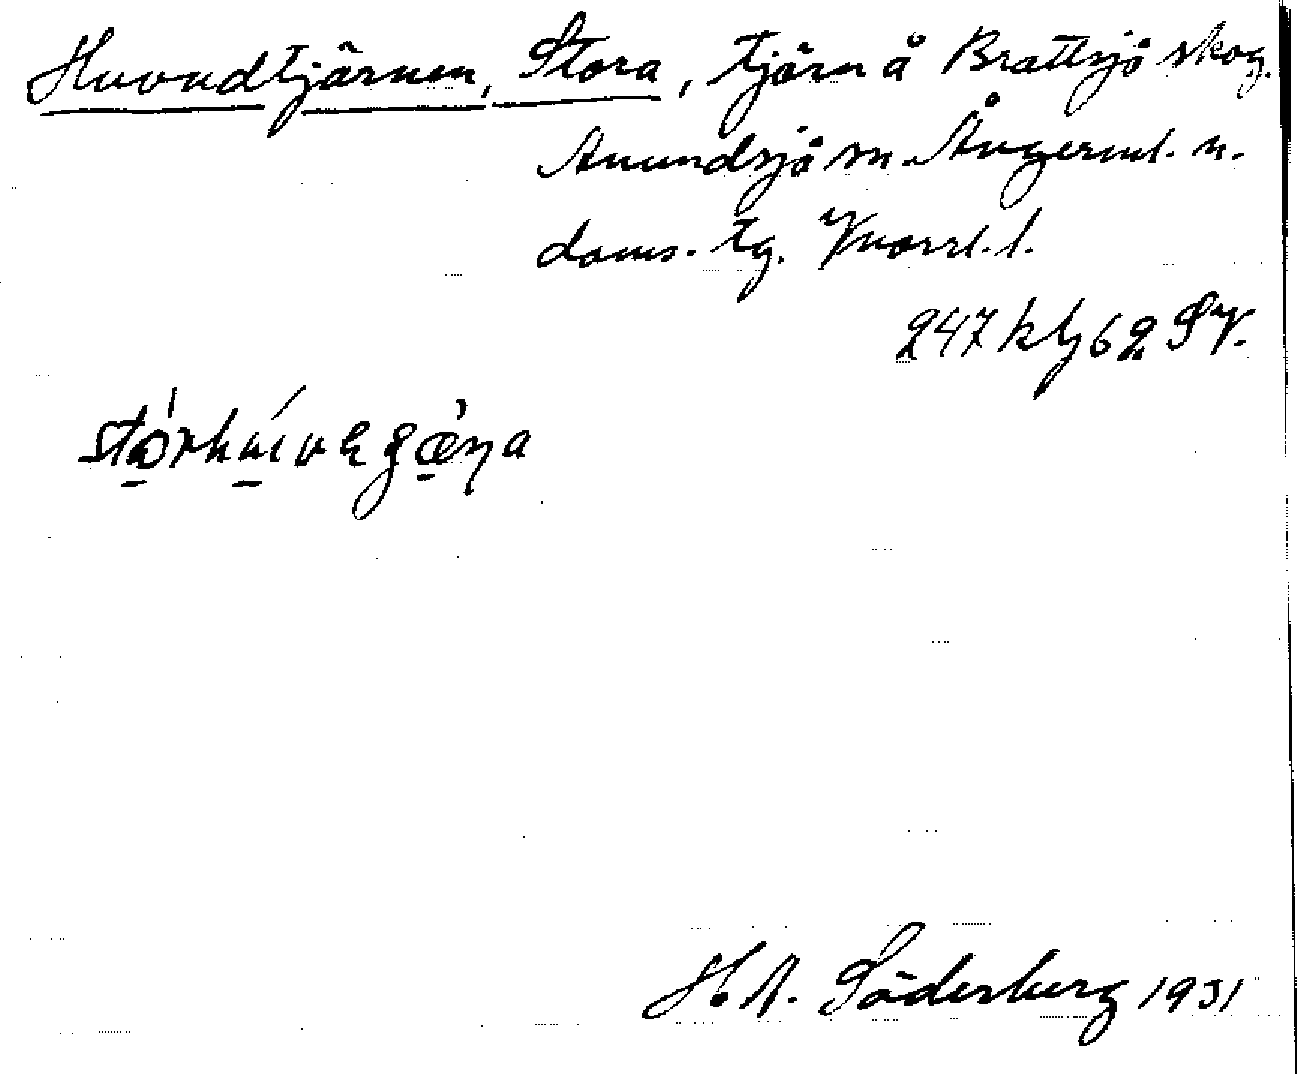 Huvudtjärnen, Stora, tjärn å Brattsjö skog.
Anundsjö sn. Ångerml. n.
doms. tg. Vnorrl. l.
247 km 62 SV.
H. A. Söderberg 1931